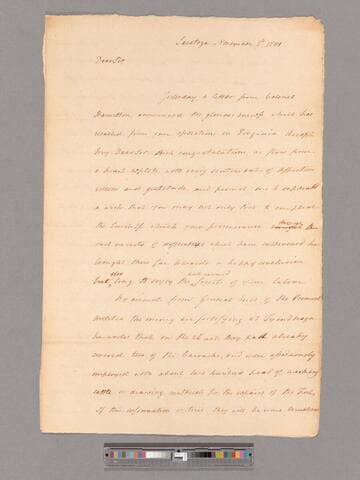 Saratoga November 2d. 1781
Dear Sir
Yesterday a letter from Colonel
Hamilton announced the glorious success which has
resulted from your operations in Virginia Accept
My Dear Sir. Such congratulations as flow from
a heart replete with every sentiment of affection
esteem and gratitude, and permit me to express
a wish that you may not only live to compleat
the business which your perseverance through the
vast variety of difficulties which have intervened has
brought thus far towards a happy conclusion
But also long to enjoy the fruits of your labor.
We learned from General of the Vermont
Militia the enemy are fortifying at Tyconderoga
he adds that on the they had already
covered two of the Barracks, and were assiduously
employed with about two hundred head of working
cattle in drawing materials for the repairs of the Fort,
If this information is true, they will become troublesome